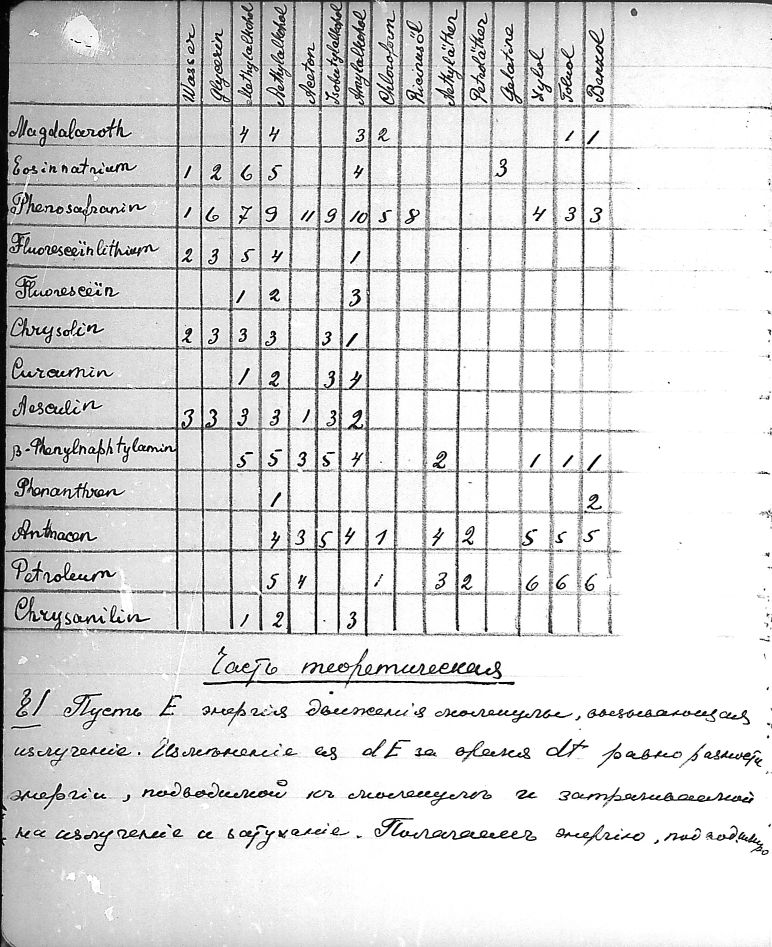 Wasser Glycerin Methylalkohol Aethylalkohol Aceton Isobutylalkohol Amylalkohol Chloroform Ricinusöl Aethyläther Petroläther Gelatine Xylol Toluol Benzol
Magdalaroth 4 4 3 2 1 1
Eosinnatrium 1 2 6 5 4 3
Phenosafranin 1 6 7 9 11 9 10 5 8 4 3 3
Fluoresceïnlithium 2 3 5 4 1
Fluoresceïn 1 2 3
Chrysolin 2 3 3 3 3 1
Curcumin 1 2 3 4
Aesculin 3 3 3 3 1 3 2
β-Phenylnaphtylamin 5 5 3 5 4 2 1 1 1
Phenanthren 1 2
Anthracen 4 3 5 4 1 4 2 5 5 5
Petroleum 5 4 1 3 2 6 6 6
Chrysanilin 1 2 3
Часть теоретическая
§1 Пусть E энергія движенія молекулы, вызывающая
излученіе. Измѣненіе ея dE за время dt равно разности
энергіи, подводимой къ молекулѣ и затрачиваемой
на излученіе и затуханіе. Полагаемъ энергію, подводимую